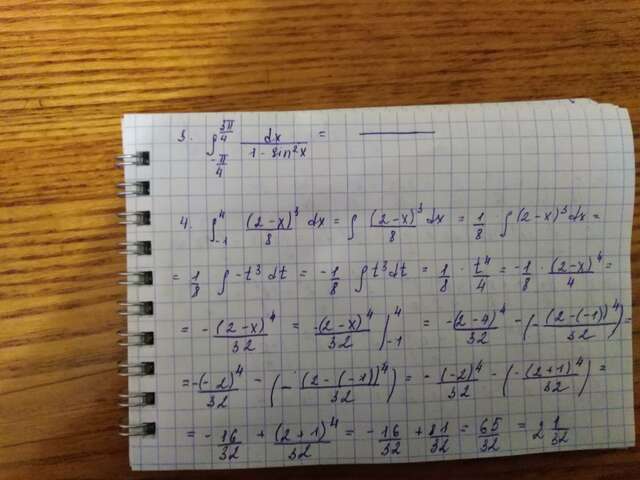 3. ∫_{-π/4}^{3π/4} dx/(1 - sin²x) = ———
4. ∫_{-1}^{4} (2-x)³/8 dx = ∫ (2-x)³/8 dx = 1/8 · ∫(2-x)³dx =
= 1/8 ∫ -t³ dt = -1/8 ∫t³dt = 1/8 · t⁴/4 = -1/8 · (2-x)⁴/4 =
= - (2-x)⁴/32 = -(2-x)⁴/32 |_{-1}^{4} = -(2-4)⁴/32 - (-(2-(-1))⁴/32) =
= -(-2)⁴/32 - (-(2-(-1))⁴/32) = - (-2)⁴/32 - (-(2+1)⁴/32) =
= - 16/32 + (2+1)⁴/32 = - 16/32 + 81/32 = 65/32 = 2 1/32